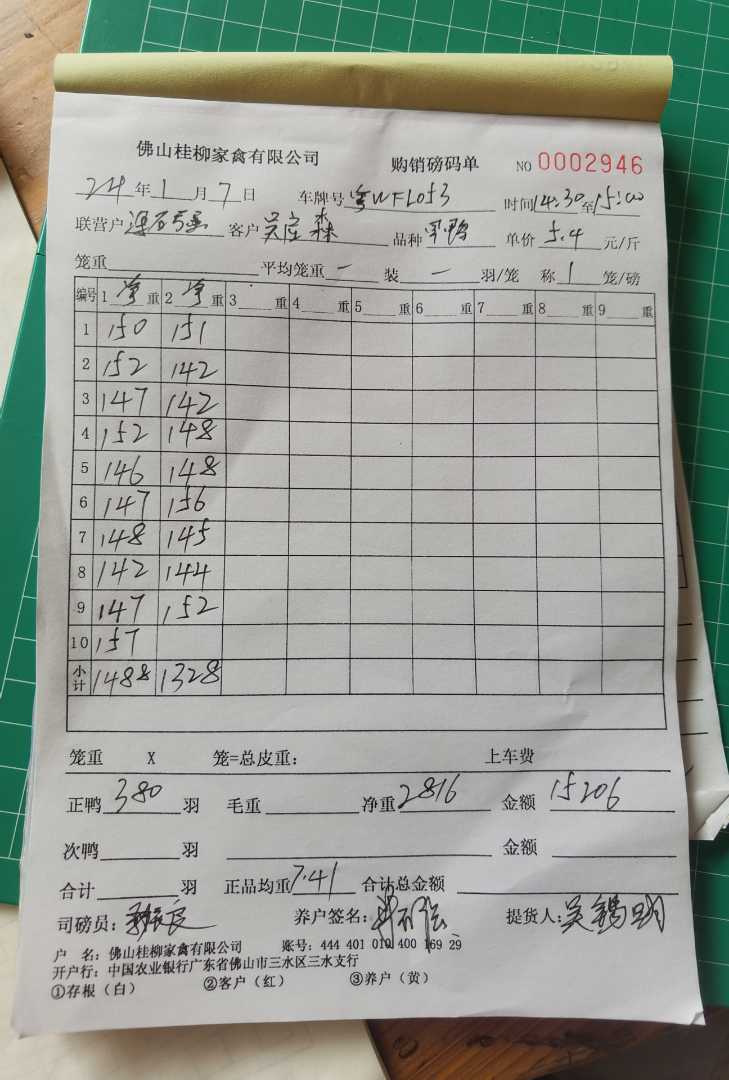 佛山桂柳家禽有限公司 购销磅码单 NO 0002946
24年1月7日 车牌号 WFL053 时间14:30至15:00
联营户 客户 吴 森 品种 鸭 单价 5.4 元/斤
笼重 平均笼重 一 装 一 羽/笼 称 1 笼/磅
编号 1 净 重 2 净 重 3 重 4 重 5 重 6 重 7 重 8 重 9 重
1 150 151
2 152 142
3 147 142
4 152 148
5 146 148
6 147 156
7 148 145
8 142 144
9 147 152
10 157
小计 1488 1328
笼重 X 笼=总皮重: 上车费
正鸭 380 羽 毛重 净重 2816 金额 15206
次鸭 羽 金额
合计 羽 正品均重 7.41 合计总金额
司磅员: 养户签名: 提货人: 吴锡明
户 名: 佛山桂柳家禽有限公司 账号: 444 401 010 400 169 29
开户行: 中国农业银行广东省佛山市三水区三水支行
①存根（白） ②客户（红） ③养户（黄）